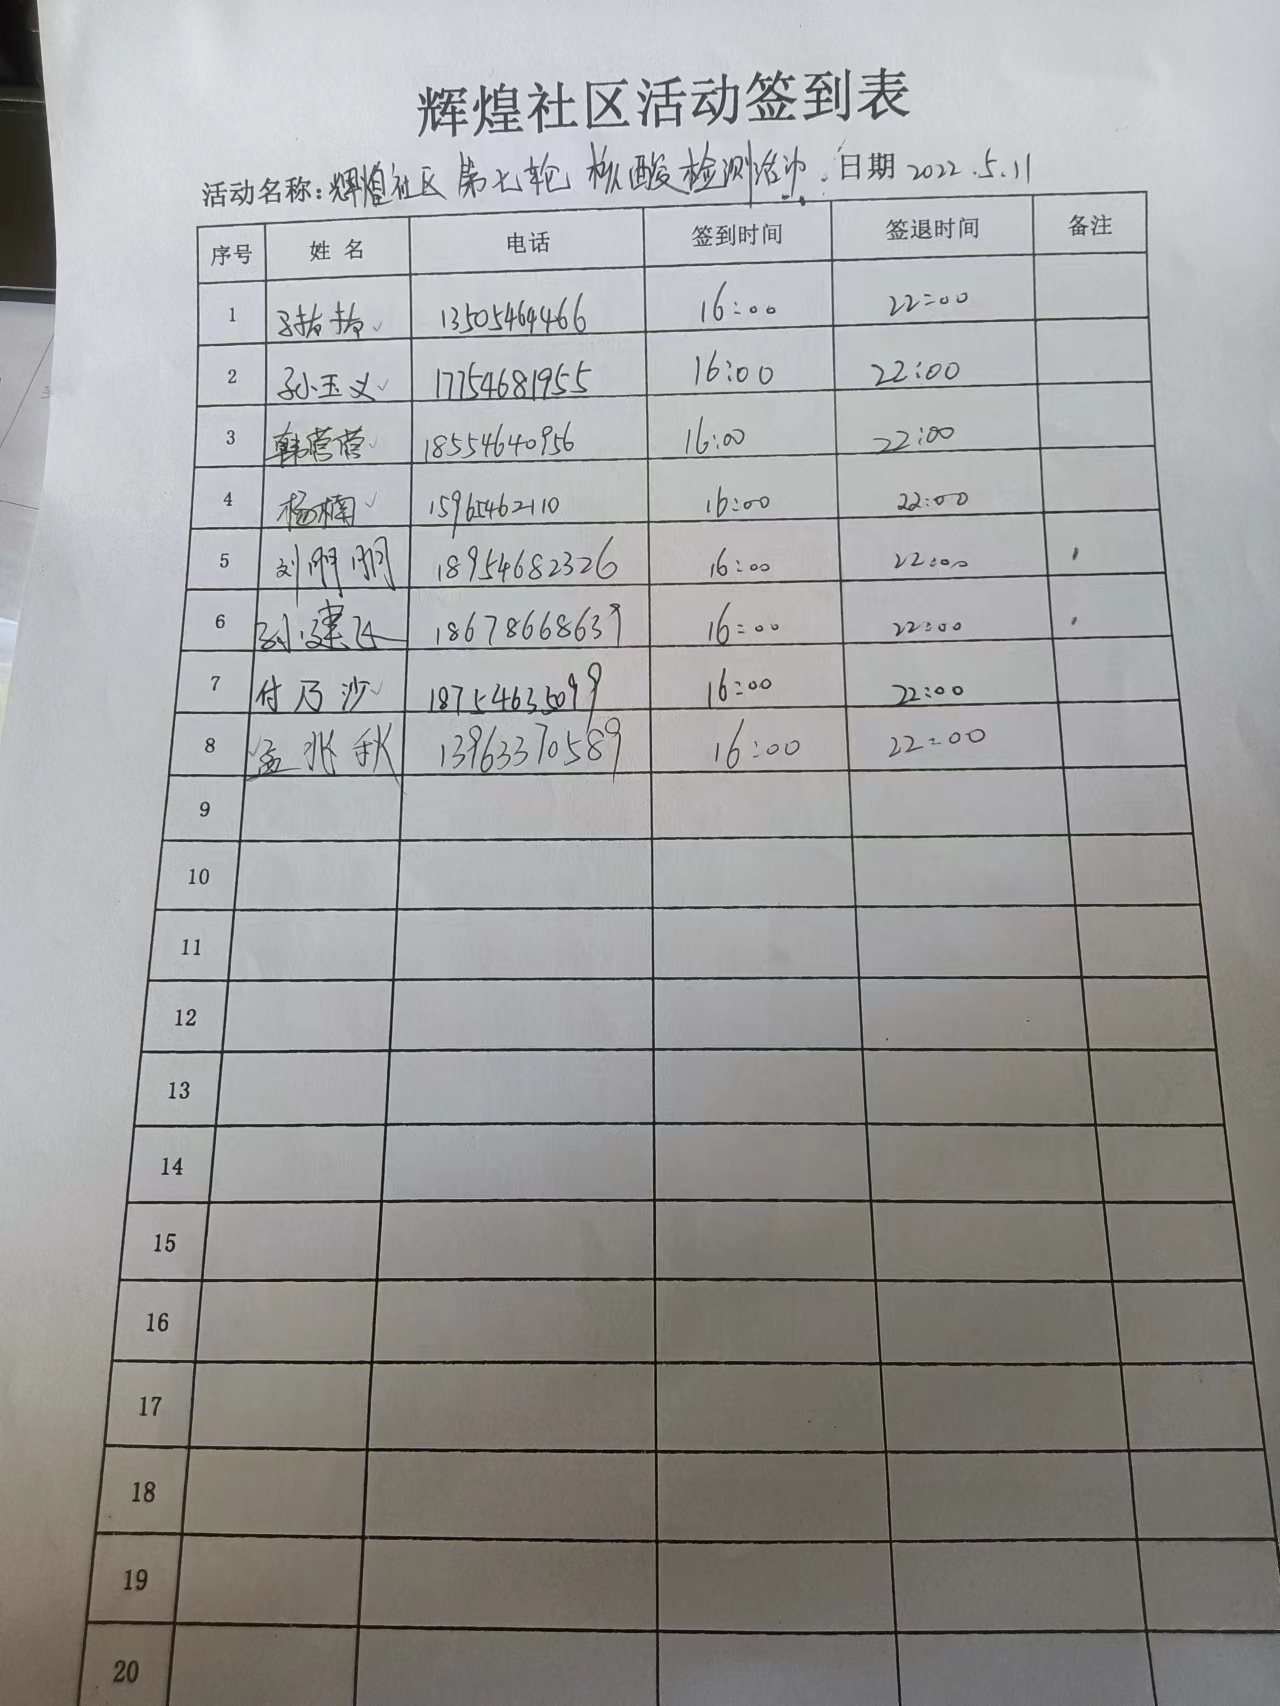 辉煌社区活动签到表
活动名称:辉煌社区第七轮核酸检测活动. 日期 2022.5.11
序号 姓名 电话 签到时间 签退时间 备注
1 13505464466 16:00 22:00
2 孙玉义 17754681955 16:00 22:00
3 韩营营 18554640956 16:00 22:00
4 杨楠 15965462110 16:00 22:00
5 刘朋朋 18954682326 16:00 22:00
6 18678668639 16:00 22:00
7 付乃沙 18754635099 16:00 22:00
8 孟兆秋 13963370589 16:00 22:00
9
10
11
12
13
14
15
16
17
18
19
20